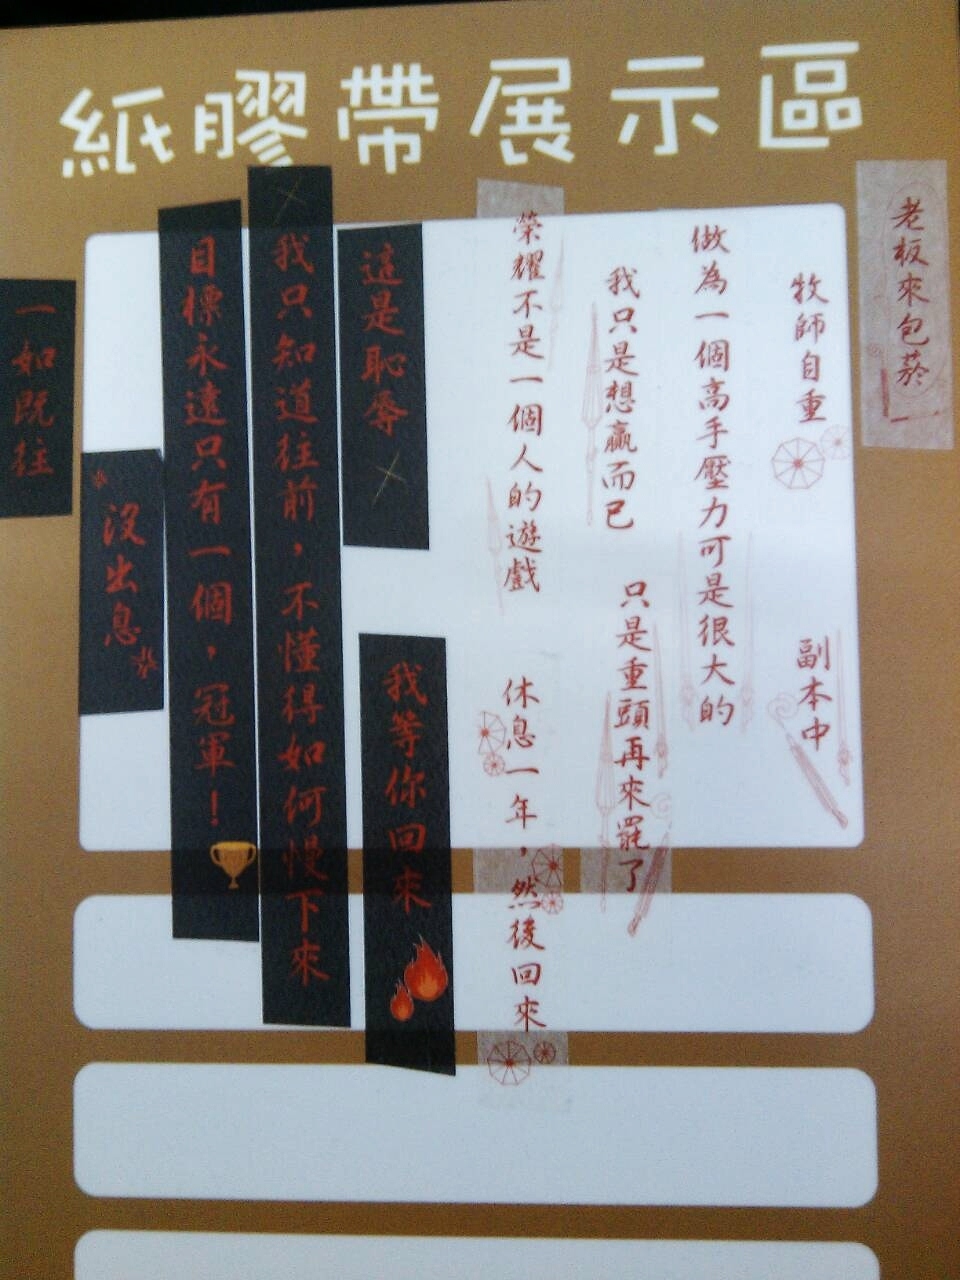 紙膠帶展示區
老板來包菸
牧師自重
副本中
做為一個高手壓力可是很大的
我只是想贏而已
只是重頭再來罷了
榮耀不是一個人的遊戲
休息一年，然後回來
這是恥辱
我等你回來
我只知道往前，不懂得如何慢下來
目標永遠只有一個，冠軍！
沒出息
一如既往